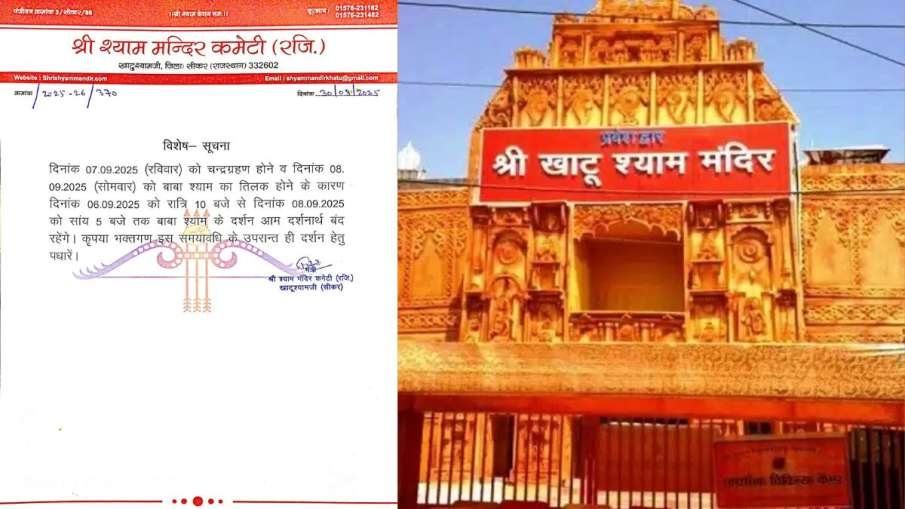 पंजीयन क्रमांक 3/सीकर/86
।।श्री श्याम देवाय नमः।।
01576-231182
01576-231482
श्री श्याम मन्दिर कमेटी (रजि.)
खाटूश्यामजी, जिलाः सीकर (राजस्थान) 332602
Website : Shrishyammandir.com
Email : shyammandirkhatu@gmail.com
क्रमांक /2025-26/370
दिनांक 30/08/2025
विशेष– सूचना
दिनांक 07.09.2025 (रविवार) को चन्द्रग्रहण होने व दिनांक 08.
09.2025 (सोमवार) को बाबा श्याम का तिलक होने के कारण
दिनांक 06.09.2025 को रात्रि 10 बजे से दिनांक 08.09.2025
को सांय 5 बजे तक बाबा श्याम के दर्शन आम दर्शनार्थ बंद
रहेंगे। कृपया भक्तगण इस समयावधि के उपरान्त ही दर्शन हेतु
पधारें।
मंत्री
श्री श्याम मंदिर कमेटी (रजि.)
खाटूश्यामजी (सीकर)
प्रवेश द्वार
श्री खाटू श्याम मंदिर